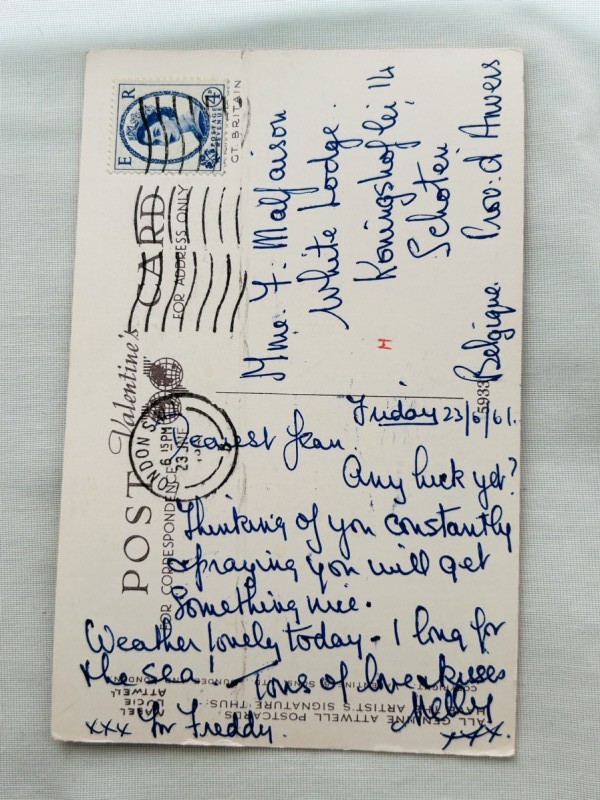 POST CARD
Valentine's
FOR CORRESPONDENCE
FOR ADDRESS ONLY
E R
4D
POSTAGE
REVENUE
GT. BRITAIN
LONDON S
6 15 PM
23 JNE
Mme. F. Malfaison
White Lodge.
Koningshoflei 14
Schoten
Prov: d'Anvers
Belgique.
H
5933
Friday 23/6/61.
Dearest Jean.
Any luck yet?
Thinking of you constantly
& praying you will get
something nice.
Weather lovely today - I long for
the sea! - Tons of love & kisses
Nelly
xxx for Freddy. xxx.
ALL GENUINE ATTWELL POSTCARDS
HAVE THE ARTIST'S SIGNATURE THUS:
MABEL
LUCIE
ATTWELL
COPYRIGHT
VALENTINE & SONS, LTD., DUNDEE AND LONDON